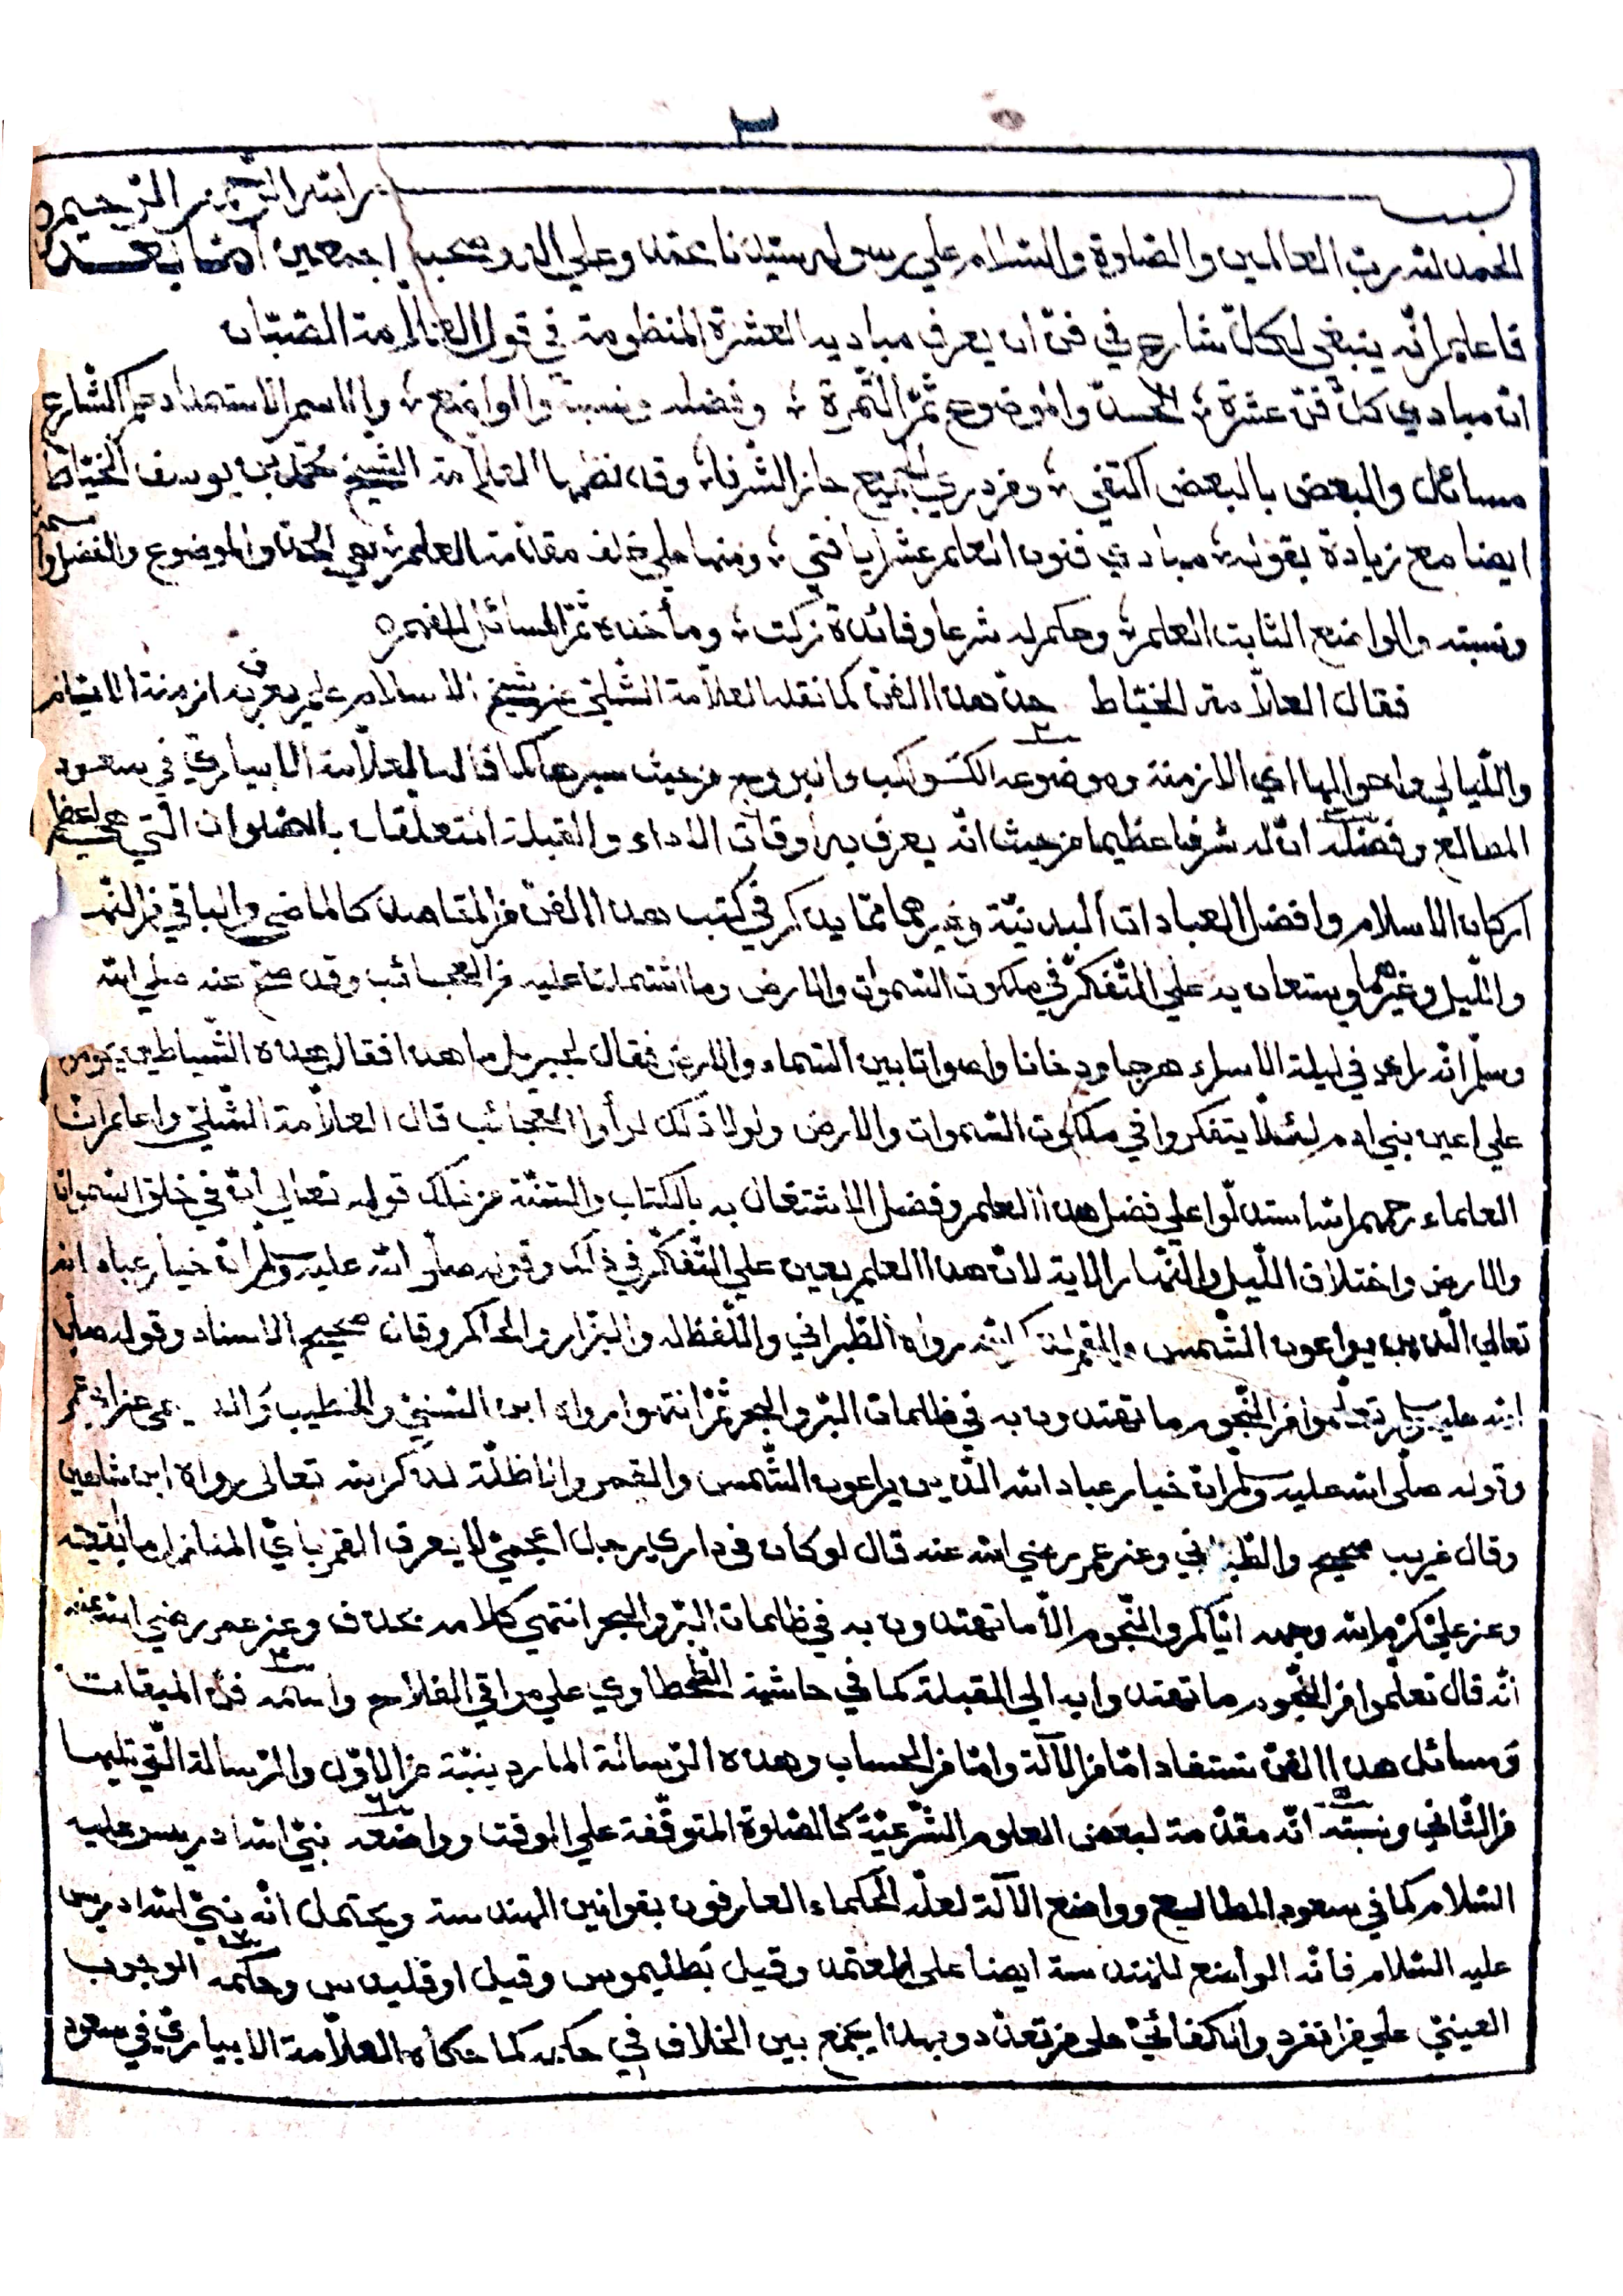 ٢
بسم الله الرحمن الرحيم
الحمد لله رب العالمين والصلوة والسلام علي رسوله سيدنا محمد وعلي اله وصحبه اجمعين امّا بعد
فاعلم انّه ينبغي لكلّ شارع في فنّ ان يعرف مباديه العشرة المنظومة في قول العلّامة الصبّان
انّ مبادي كلّ فنّ عشرة ؛ الحدّ والموضوع ثمّ الثّمرة ؛ وفضله ونسبة والواضع ؛ والاسم الاستمداد حكم الشّارع
مسائل والبعض بالبعض اكتفي ؛ ومن دري الجميع حاز الشّرفا ؛ وقد نظمها العلّامة الشّيخ محمّد بن يوسف الخيّاط
ايضا مع زيادة بقوله ؛ مبادي فنون العلم عشر يا فتي ؛ ومنها علي خلف مقدّمة العلم ؛ هي الحدّ والموضوع والفضل واسمه
ونسبته والواضع الثابت العلم ؛ وحكم له شرعا وفائدة زكت ؛ ومأخذه ثمّ المسائل للفهم ٥
فقال العلّامة الخيّاط حدّ هذا الفنّ كما نقله العلّامة الشّلّي عن شيخ الاسلام علم يعرف به ازمنة الايّام
واللّيالي واحوالها اي الازمنة وموضوعه الكواكب والبروج من حيث سيرها كما قاله العلّامة الابياريّ في سعود
المطالع وفضله انّ له شرفا عظيما من حيث انّه يعرف به اوقات الاداء والقبلة المتعلّقات بالصّلوات الّتي هي اعظم
اركان الاسلام وافضل العبادات البدنيّة وغيرهما ممّا يذكر في كتب هذا الفنّ من المقاصد كالماضي والباقي من النّهار
واللّيل وغيرهما ويستعان به علي التّفكّر في ملكوت السّموات والارض وما اشتملتا عليه من العجائب وقد صحّ عنه صلي الله
وسلّم انّه راي في ليلة الاسراء هرجا ودخانا واصواتا بين السّماء والارض فقال لجبريل ما هذا فقال هذه الشّياطين يحومون
علي اعين بني ادم لئلّا يتفكّروا في ملكوت السّموات والارض ولولا ذلك لرأوا العجائب قال العلّامة الشّلّي واعلم انّ
العلماء رحمهم الله استدلّوا علي فضل هذا العلم وفضل الاشتغال به بالكتاب والسّنّة من ذلك قوله تعالي انّ في خلق السّموات
والارض واختلاف اللّيل والنّهار الاية لانّ هذا العلم يعين علي التّفكّر في ذلك وقوله صلّى الله عليه وسلّم انّ خيار عباد الله
تعالي الّذين يراعون الشّمس والقمر لذكر الله رواه الطّبراني واللّفظ له والبزّار والحاكم وقال صحيح الاسناد وقوله صلّى
الله عليه وسلّم تعلّموا من النّجوم ما تهتدون به في ظلمات البرّ والبحر ثمّ انتهوا رواه ابن السّنّيّ والخطيب والديلمي عن ابن عمر
وقوله صلّى الله عليه وسلّم انّ خيار عباد الله الّذين يراعون الشّمس والقمر والاظلّة لذكر الله تعالى رواه ابن شاهين
وقال غريب صحيح والطّبراني وعن عمر رضي الله عنه قال لو كان في داري رجل اعجميّ لا يعرف القمر بايّ المنازل ما بقيته
وعن عليّ كرّم الله وجهه ايّاكم والنّجوم الّا ما تهتدون به في ظلمات البرّ والبحر انتهي كلامه بحذف وعن عمر رضي الله عنه
انّه قال تعلّموا من النّجوم ما تهتدوا به الي القبلة كما في حاشية الطّحطاوي علي مراقي الفلاح واسمه فنّ الميقات
ومسائل هذا الفنّ تستفاد امّا من الآلة وامّا من الحساب وهذه الرّسالة الماردينيّة من الاوّل والرّسالة الّتي تليها
من الثّاني ونسبته انّه مقدّمة لبعض العلوم الشّرعيّة كالصّلوة المتوقّفة علي الوقت وواضعه نبيّ الله ادريس عليه
السّلام كما في سعود المطالع وواضع الآلة لعلّه الحكماء العارفون بقوانين الهندسة ويحتمل انّه نبيّ الله ادريس
عليه السّلام فانّه الواضع للهندسة ايضا على المعتمد وقيل بَطليموس وقيل اوقليدس وحكمه الوجوب
العينيّ علي من انفرد والكفائيّ على من تعدّد وبهذا يجمع بين الخلاف في حكمه كما حكاه العلّامة الابياريّ في سعود